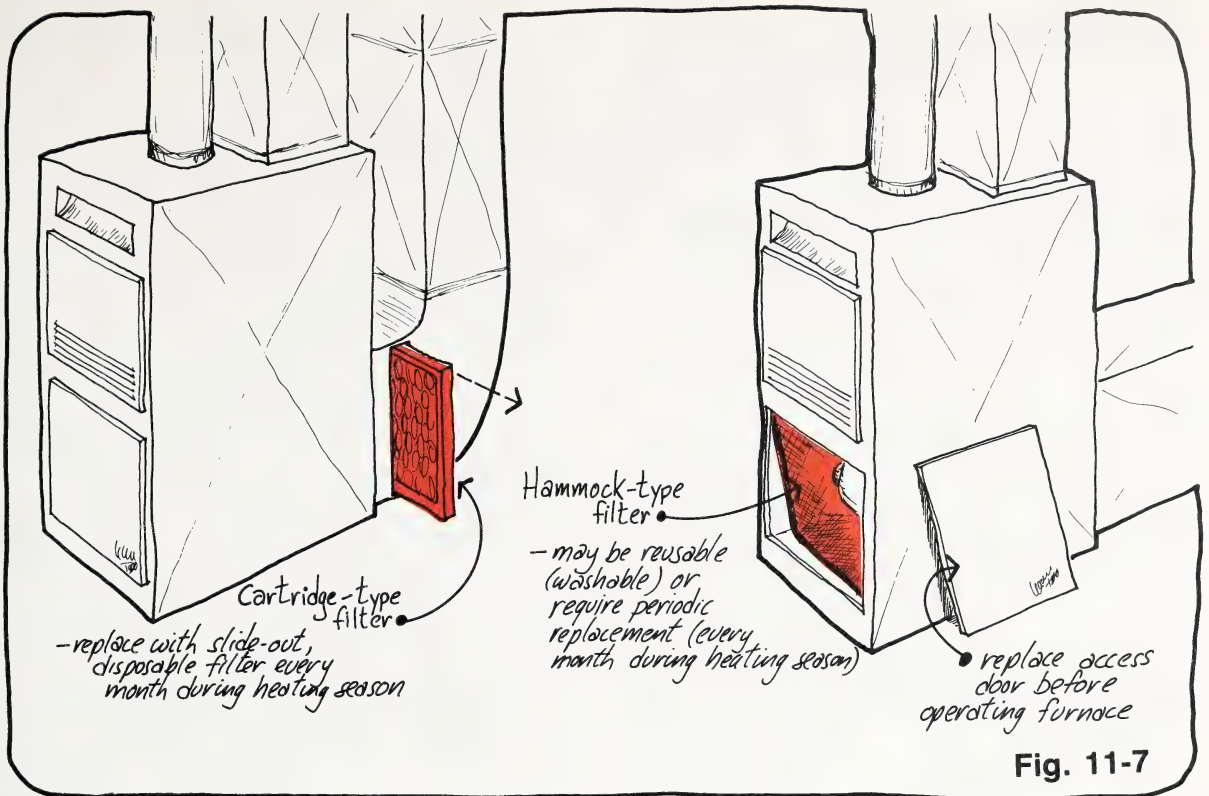 Cartridge-type
filter
-replace with slide-out,
disposable filter every
month during heating season
Hammock-type
filter
- may be reusable
(washable) or
require periodic
replacement (every
month during heating season)
replace access
door before
operating furnace
Fig. 11-7